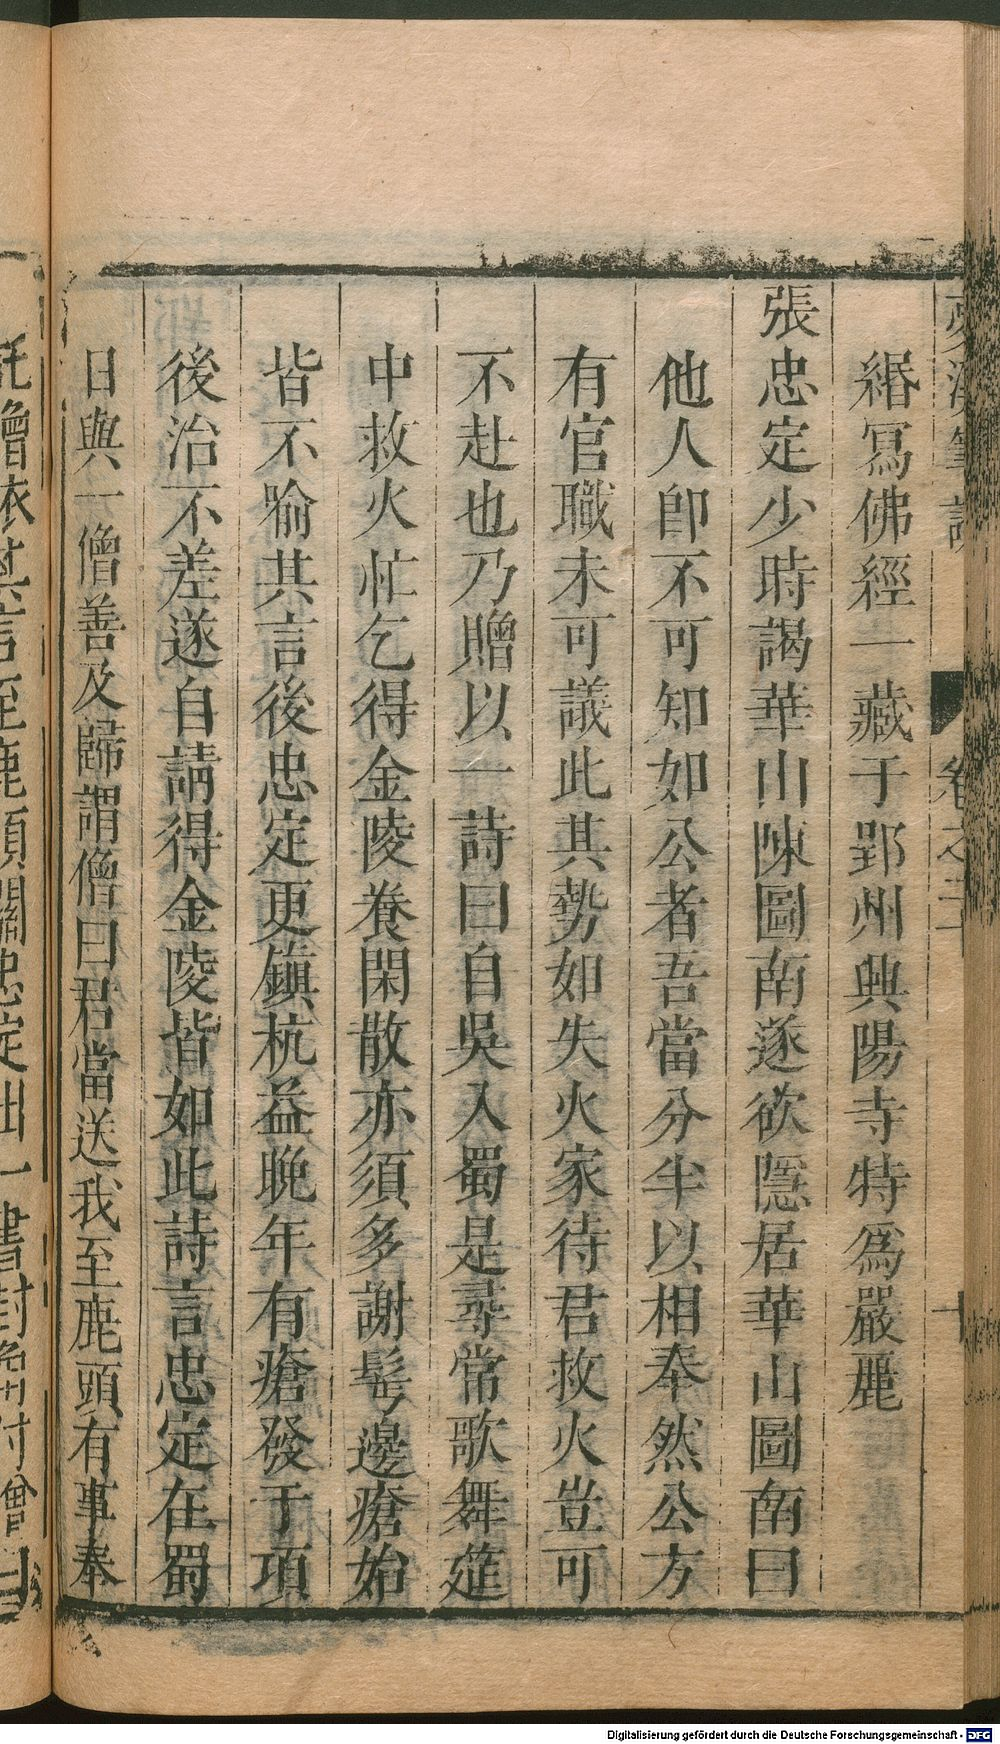 緡冩佛經一藏于郢州興陽寺特爲嚴麗
張忠定少時謁華山陳圖南遂欲隱居華山圖南曰
他人卽不可知如公者吾當分半以相奉然公方
有官職未可議此其勢如失火家待君救火豈可
不赴也乃贈以一詩曰自吳入蜀是尋常歌舞筵
中救火忙乞得金陵養閑散亦須多謝髩邊瘡始
皆不喻其言後忠定更鎮杭益晚年有瘡發于項
後治不差遂自請得金陵皆如此詩言忠定在蜀
日與一僧善及歸謂僧曰君當送我至鹿頭有事奉
託僧依其言至鹿頭關忠定出一書封角付僧曰
Digitalisierung gefördert durch die Deutsche Forschungsgemeinschaft - DFG